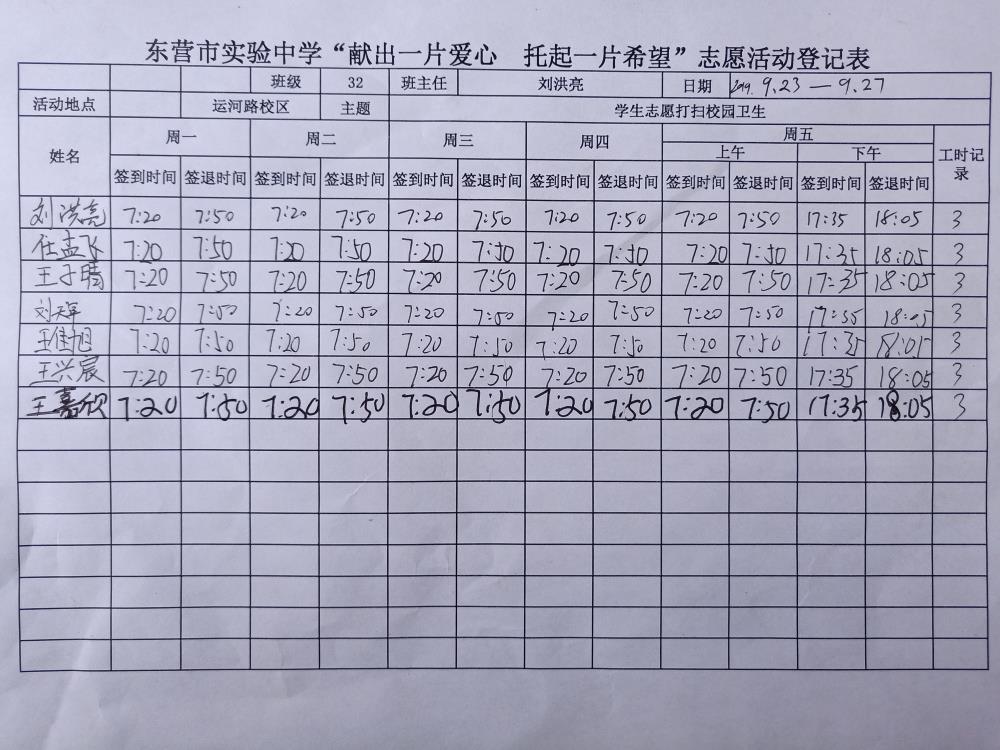 东营市实验中学“献出一片爱心 托起一片希望”志愿活动登记表
班级 32 班主任 刘洪亮 日期 2019. 9.23 — 9.27
活动地点 运河路校区 主题 学生志愿打扫校园卫生
姓名 周一 周二 周三 周四 周五 工时记录
上午 下午
签到时间 签退时间 签到时间 签退时间 签到时间 签退时间 签到时间 签退时间 签到时间 签退时间 签到时间 签退时间
刘洪亮 7:20 7:50 7:20 7:50 7:20 7:50 7:20 7:50 7:20 7:50 17:35 18:05 3
任孟飞 7:20 7:50 7:20 7:50 7:20 7:50 7:20 7:50 7:20 7:50 17:35 18:05 3
王子晴 7:20 7:50 7:20 7:50 7:20 7:50 7:20 7:50 7:20 7:50 17:35 18:05 3
刘 7:20 7:50 7:20 7:50 7:20 7:50 7:20 7:50 7:20 7:50 17:35 18:05 3
王佳旭 7:20 7:50 7:20 7:50 7:20 7:50 7:20 7:50 7:20 7:50 17:35 18:05 3
王兴宸 7:20 7:50 7:20 7:50 7:20 7:50 7:20 7:50 7:20 7:50 17:35 18:05 3
王嘉欣 7:20 7:50 7:20 7:50 7:20 7:50 7:20 7:50 7:20 7:50 17:35 18:05 3